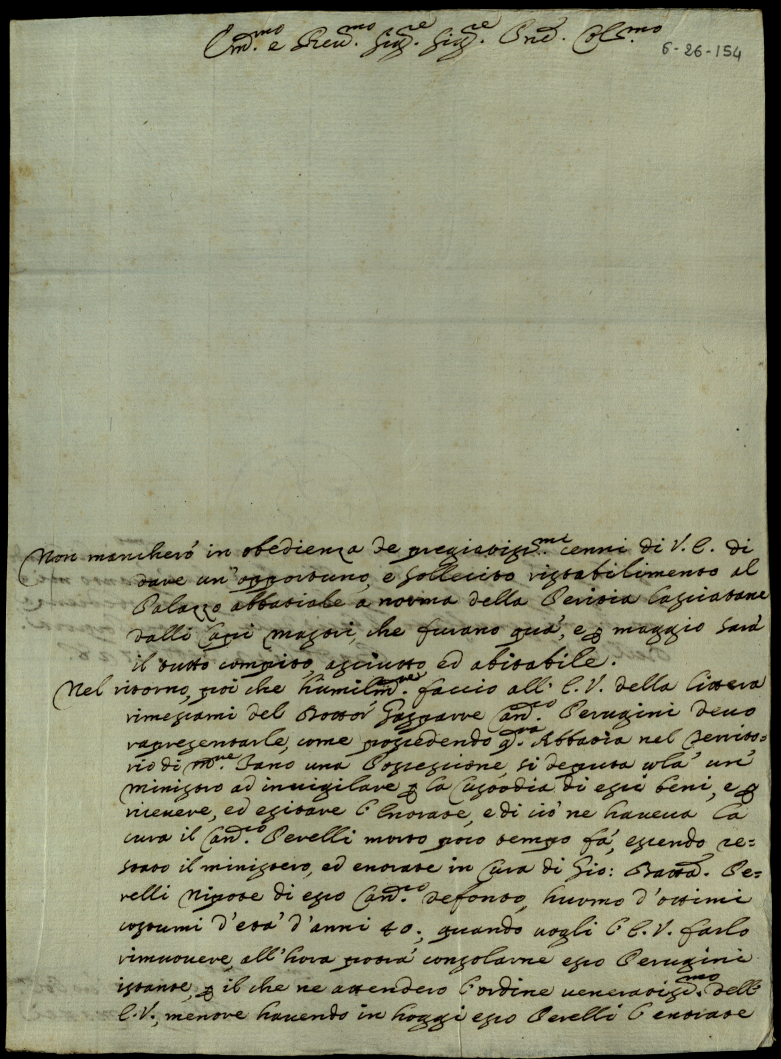 Em.mo e Reu.mo Sig.re Sig.re Pnē. Col.mo
6-26-154
Non mancherò in obedienza de pregiatissi.mi cenni di V. E. di
dare un' opportuno, e sollecito ristabilimento al
Palazzo abbatiale a norma della Perizia lasciatane
dalli Capi mastri, che furano quà, e ꝑ maggio sarà
il tutto compito, asciutto ed abitabile.
Nel ritorno, poi che humilm.te faccio all' E. V. della littera
rimessami del Dottor Gasparre Can.co Perugini deuo
rapresentarle, come possedendo q.ta Abbadia nel Territo=
rio di M.te Fano una Possessione, si deputa colà un'
ministro ad inuigilare ꝑ la Custodia di essi beni, e ꝑ
riceuere, ed esitare l' Entrate, e di ciò ne haueua la
cura il Can.co Perelli morto poco tempo fà, essendo re=
stato il ministero, ed entrate in Cura di Gio: Batta. Pe=
relli Nipote di esso Can.co defonto, huomo d'ottimi
costumi d'età d'anni 40; quando uogli l' E. V. farlo
rimuouere, all'hora potrà consolarne esso Perugini
istante, ꝑ il che ne attenderò l'ordine ueneratiss.mo dell'
E. V., mentre hauendo in hoggi esso Perelli l' entrate